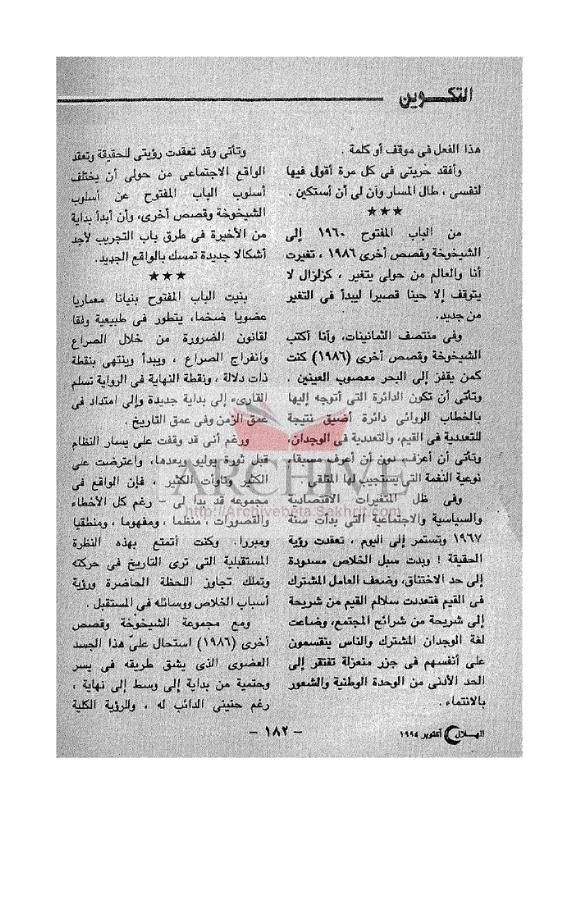 التكوين
هذا الفعل فى موقف أو كلمة .
وأفقد حريتى فى كل مرة أقول فيها
لنفسى ، طال المسار وآن لى أن أستكين .
★★★
من الباب المفتوح ١٩٦٠ إلى
الشيخوخة وقصص أخرى ١٩٨٦ ، تغيرت
أنا والعالم من حولى يتغير ، كزلزال لا
يتوقف إلا حينا قصيرا ليبدأ فى التغير
من جديد.
وفى منتصف الثمانينات، وأنا أكتب
الشيخوخة وقصص أخرى (١٩٨٦) كنت
كمن يقفز إلى البحر معصوب العينين .
وتأتى أن تكون الدائرة التى أتوجه إليها
بالخطاب الروائى دائرة أضيق نتيجة
للتعددية فى القيم، والتعددية فى الوجدان،
وتأتى أن أعزف دون أن أعرف مسبقا،
نوعية النغمة التى يستجيب لها المتلقى .
وفى ظل المتغيرات الاقتصادية
والسياسية والاجتماعية التى بدأت سنة
١٩٦٧ وتستمر إلى اليوم ، تعقدت رؤية
الحقيقة ! وبدت سبل الخلاص مسدودة
إلى حد الاختناق، وضعف العامل المشترك
فى القيم فتعددت سلالم القيم من شريحة
إلى شريحة من شرائح المجتمع، وضاعت
لغة الوجدان المشترك والناس ينقسمون
على أنفسهم فى جزر منعزلة تفتقر إلى
الحد الأدنى من الوحدة الوطنية والشعور
بالانتماء .
وتأتى وقد تعقدت رؤيتى للحقيقة وتعقد
الواقع الاجتماعى من حولى أن يختلف
أسلوب الباب المفتوح عن أسلوب
الشيخوخة وقصص أخرى، وأن أبدأ بداية
من الأخيرة فى طرق باب التجريب لأجد
أشكالا جديدة تمسك بالواقع الجديد.
★★★
بنيت الباب المفتوح بنيانا معماريا
عضويا ضخما، يتطور فى طبيعية وفقا
لقانون الضرورة من خلال الصراع
وانفراج الصراع ، ويبدأ وينتهى بنقطة
ذات دلالة ، ونقطة النهاية فى الرواية تسلم
القارىء إلى بداية جديدة وإلى امتداد فى
عمق الزمن وفى عمق التاريخ .
ورغم أنى قد وقفت على يسار النظام
قبل ثورة يوليو وبعدها، واعترضت على
الكثير وناوأت الكثير ، فإن الواقع فى
مجموعه قد بدا لى - رغم كل الأخطاء
والقصورات ، منظما ، ومفهوما ، ومنطقيا
ومبررا. وكنت أتمتع بهذه النظرة
المستقبلية التى ترى التاريخ فى حركته
وتملك تجاوز اللحظة الحاضرة ورؤية
أسباب الخلاص ووسائله فى المستقبل .
ومع مجموعة الشيخوخة وقصص
أخرى (١٩٨٦) استحال على هذا الجسد
العضوى الذى يشق طريقه فى يسر
وحتمية من بداية إلى وسط إلى نهاية ،
رغم حنينى الدائب له ، والرؤية الكلية
ARCHIVE
http://Archivebeta.Sakhrit.com
الهلال أكتوبر ١٩٩٤
- ١٨٢ -